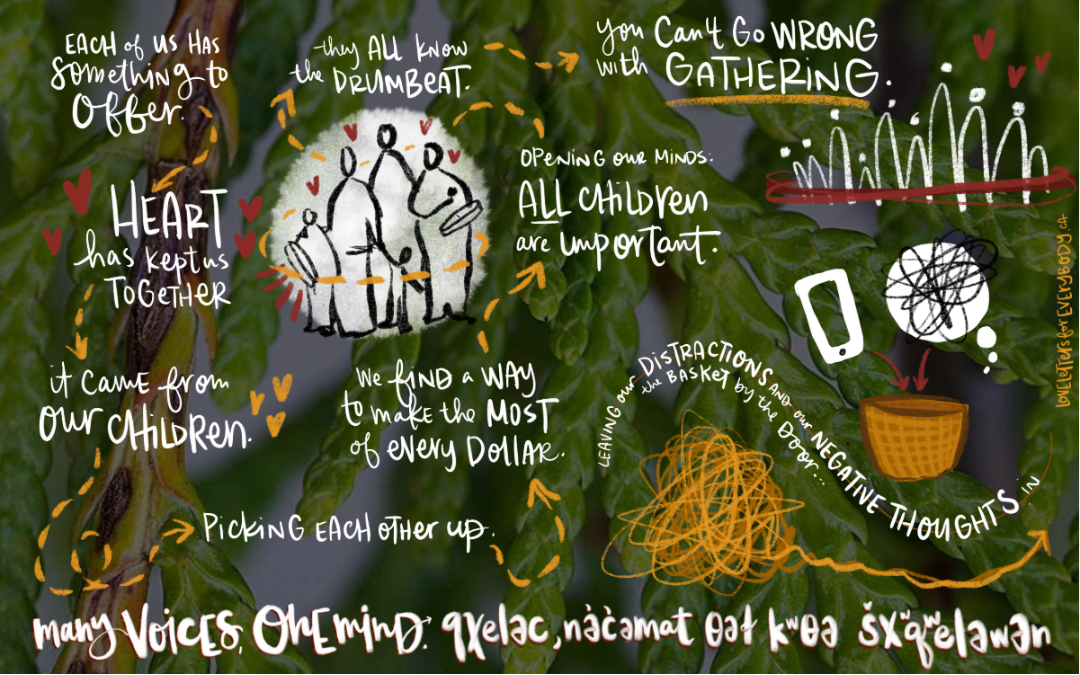 EACH of US HAS
Something to
Offer.
they ALL KNOW
the DRUMBEAT.
you Can't Go WRONG
with GATHERING.
OPENING OUR MINDS:
ALL CHildren
are important.
HEART
has kept us
TOGETHER
it CAME from
OUR CHILDREN.
We find a WAY
to make the MOST
of every DOLLAR.
Picking EACH other up.
LEAVING our DISTRACTIONS AND our NEGATIVE THOUGHTS IN
the BASKET by the Door...
many Voices, One mind. qx̌eləc, nə́c̓amat θəɬ kʷθə šxʷqʷeləwən
LOVELETTERSforEVERYBODY.ca